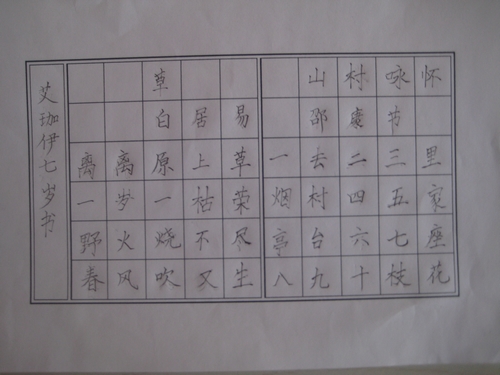 艾珈伊七岁书
草
白居易
离离原上草
一岁一枯荣
野火烧不尽
春风吹又生
山村咏怀
邵康节
一去二三里
烟村四五家
亭台六七座
八九十枝花